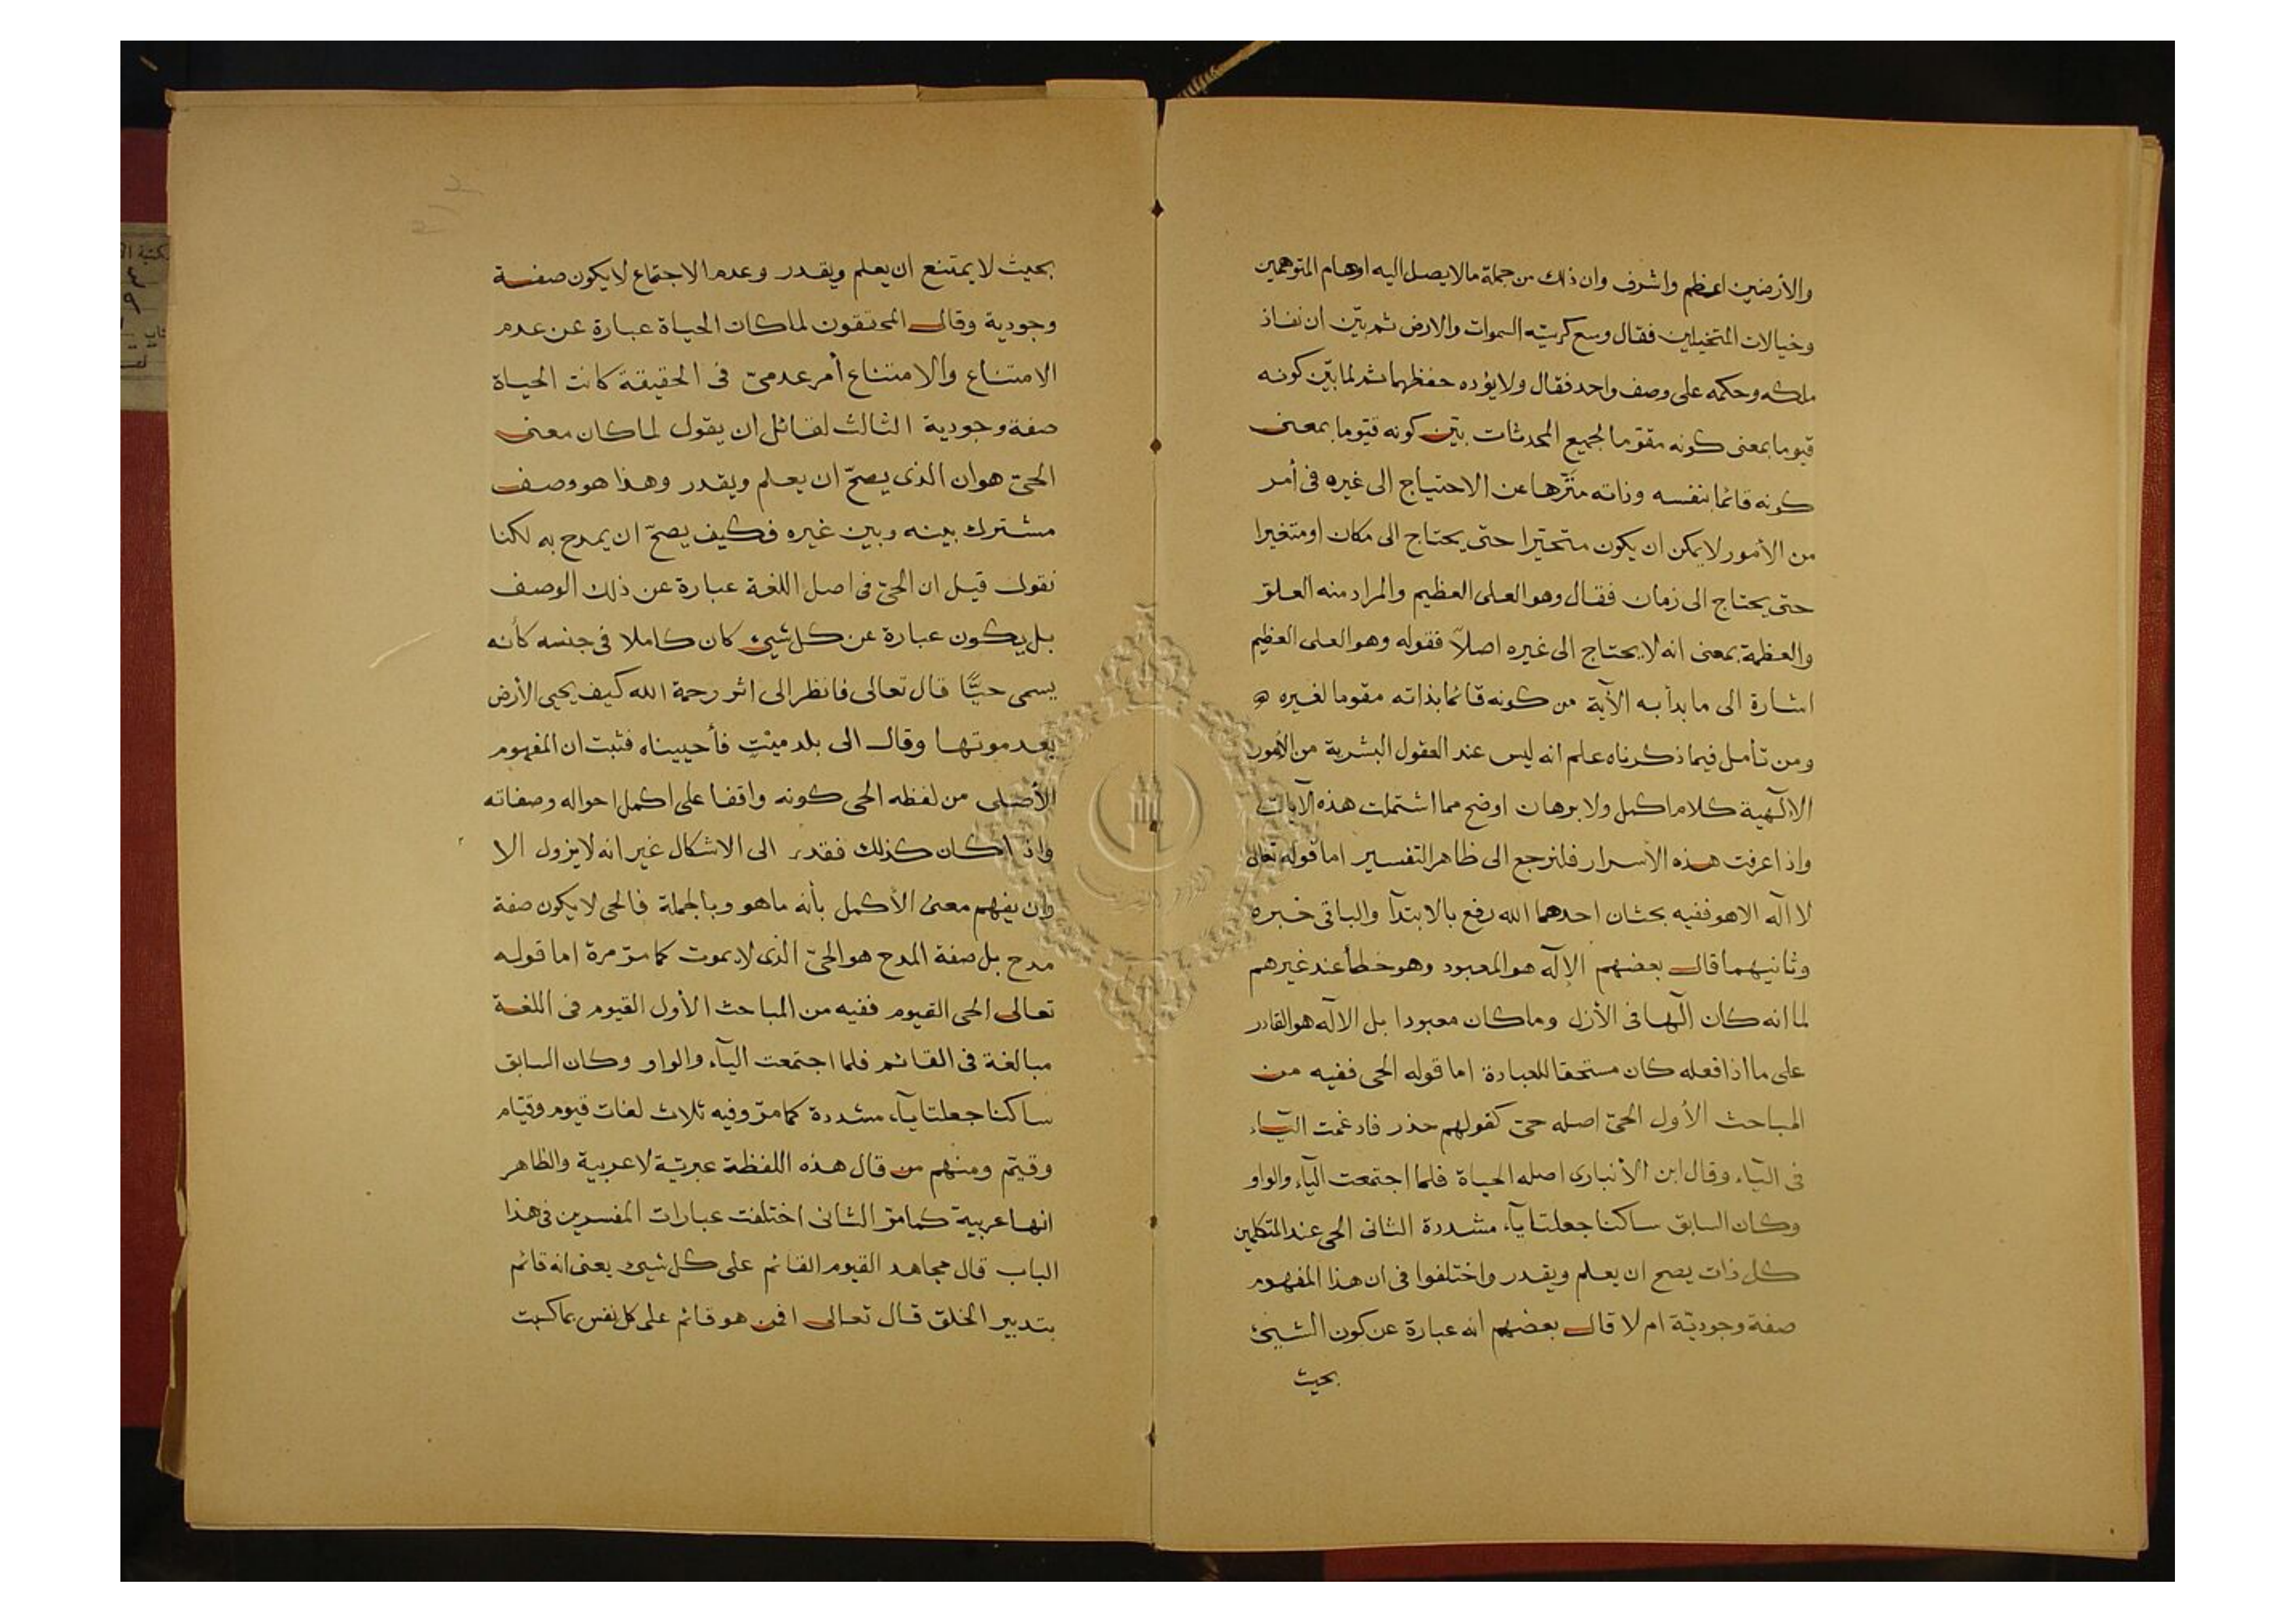 والأرضين اعظم واشرف وان ذلك من جملة مالا يصل اليه اوهام المتوهمين
وخيالات المتخيلين فقال وسع كرسيّه السموات والارض ثم بيّن ان نفاذ
ملكه وحكمه على وصف واحد فقال ولا يؤده حفظهما ثم لما بيّن كونه
قيوما بمعنى كونه مقوّما لجميع المحدثات بيّن كونه قيّوما بمعنى
كونه قائما بنفسه وذاته منزّها عن الاحتياج الى غيره فى أمر
من الأمور لا يمكن ان يكون متحيّزا حتى يحتاج الى مكان او متغيرا
حتى يحتاج الى زمان فقال وهو العلى العظيم والمراد منه العلوّ
والعظمة بمعنى انه لا يحتاج الى غيره اصلاً فقوله وهو العلى العظيم
اشارة الى ما بدأ به الآية من كونه قائما بذاته مقوما لغيره
ومن تأمل فيما ذكرناه علم انه ليس عند العقول البشرية من الأمور
الالٓهية كلام اكمل ولا برهان اوضح مما اشتملت هذه الآيات
واذا عرفت هذه الأسرار فلنرجع الى ظاهر التفسير اما قوله تعالى
لا الٓه الا هو ففيه بحثان احدهما الله رفع بالابتدآ والباقى خبره
وثانيهما قال بعضهم الإلٓه هو المعبود وهو خطأ عند غيرهم
لما انه كان الٓها فى الأزل وما كان معبودا بل الالٓه هو القادر
على ما اذا فعله كان مستحقا للعبادة اما قوله الحى ففيه من
المباحث الأول الحىّ اصله حىّ كقولهم حذر فادغمت اليآء
فى اليآء وقال ابن الأنبارى اصله الحياة فلما اجتمعت اليآء والواو
وكان السابق ساكنا جعلتا يآء مشددة الثانى الحى عند المتكلمين
كل ذات يصح ان يعلم ويقدر واختلفوا فى ان هذا المفهوم
صفة وجوديّة ام لا قال بعضهم انه عبارة عن كون الشيئ
بحيث
بحيث لا يمتنع ان يعلم ويقدر وعدم الاجتماع لا يكون صفة
وجودية وقال المحققون لما كان الحياة عبارة عن عدم
الامتناع والامتناع أمر عدمىّ فى الحقيقة كانت الحياة
صفة وجودية الثالث لقائل ان يقول لما كان معنى
الحىّ هو ان الذى يصحّ ان يعلم ويقدر وهذا هو وصف
مشترك بينه وبين غيره فكيف يصحّ ان يمدح به لكنا
نقول قيل ان الحىّ فى اصل اللغة عبارة عن ذلك الوصف
بل يكون عبارة عن كل شيئ كان كاملا فى جنسه كأنه
يسمى حيًّا قال تعالى فانظر الى اثر رحمة الله كيف يحيى الأرض
بعد موتها وقال الى بلد ميّتٍ فأحييناه فثبت ان المفهوم
الأصلى من لفظه الحى كونه واقفا على اكمل احواله وصفاته
واذا كان كذلك فقدر الى الاشكال غير انه لا يزول الا
وان يفهم معنى الأكمل بأنه ما هو وبالجملة فالحى لا يكون صفة
مدح بل صفة المدح هو الحىّ الذى لا يموت كما مرّ مرة اما قوله
تعالى الحى القيوم ففيه من المباحث الأول القيوم فى اللغة
مبالغة فى القائم فلما اجتمعت اليآء والواو وكان السابق
ساكنا جعلتا يآء مشددة كما مرّ وفيه ثلاث لغات قيوم وقيّام
وقيّم ومنهم من قال هذه اللفظة عبريّة لا عربية والظاهر
انها عربية كما مرّ الثانى اختلفت عبارات المفسرين فى هذا
الباب قال مجاهد القيوم القائم على كل شيئ يعنى انه قائم
بتدبير الخلق قال تعالى افمن هو قائم على كل نفس بما كسبت